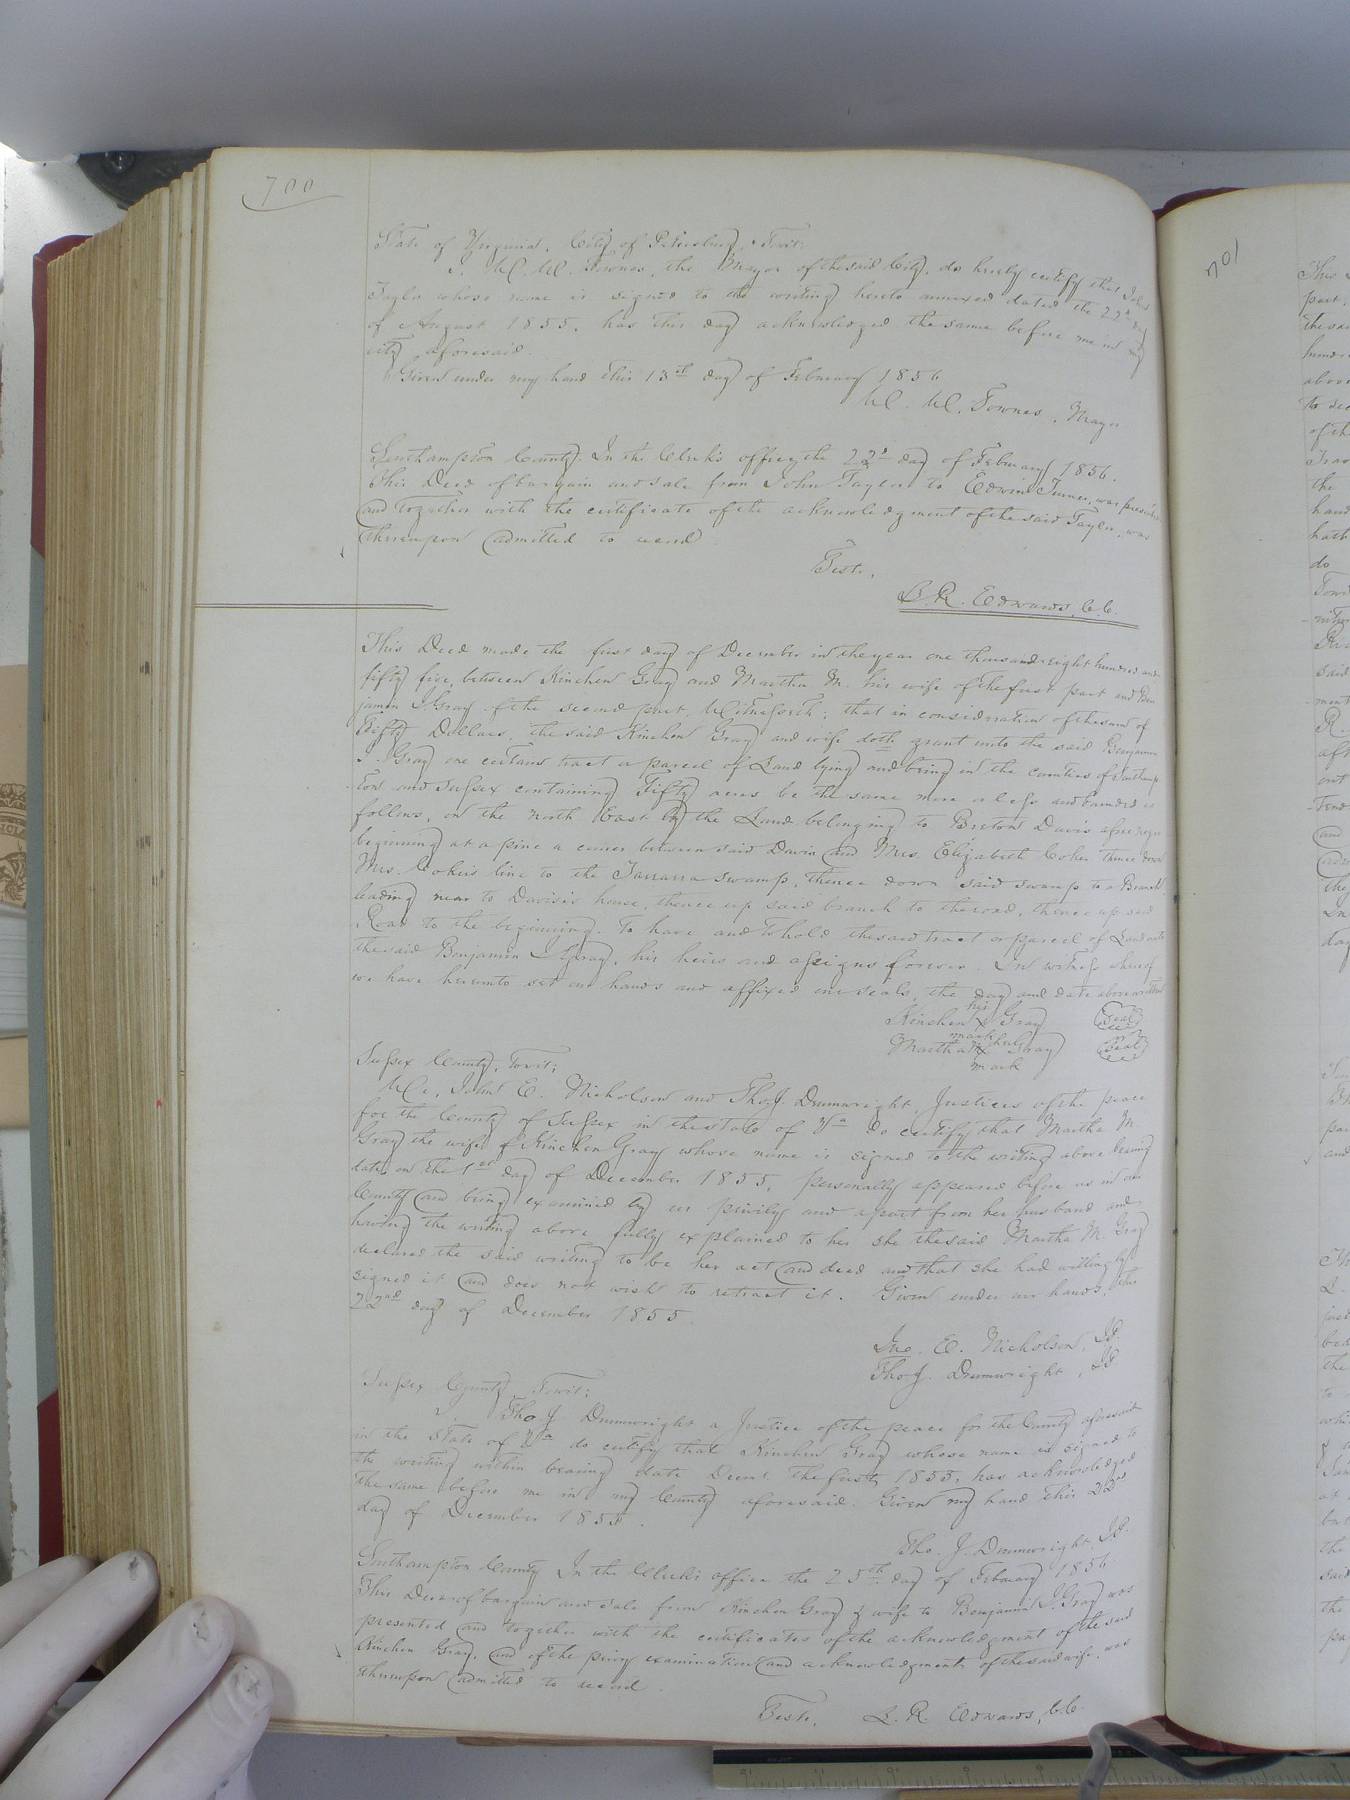 700
State of Virginia, City of Petersburg, Towit:
I, W. W. Townes, the Mayor of the said City, do hereby certify that John
Taylor whose name is signed to the writing hereto annexed dated the 22d day
of August 1855, has this day acknowledged the same before me in my
city aforesaid.
Given under my hand this 13th day of February 1856
W. W. Townes, Mayor
Southampton County. In the Clerk's office the 22d day of February 1856.
This Deed of bargain and sale from John Taylor to Edwin Turner, was presented
and together with the certificate of the acknowledgment of the said Taylor, was
thereupon admitted to record.
Teste,
L. R. Edwards, C.C.
This Deed made the first day of December in the year one thousand eight hundred and
fifty five, between Kinchen Gray and Martha M. his wife of the first part and Ben
jamin J. Gray of the second part, Witnesseth: that in consideration of the sum of
Fifty Dollars, the said Kinchen Gray and wife doth grant unto the said Benjamin
J. Gray one certain tract or parcel of Land lying and being in the counties of Southamp
ton and Sussex containing Fifty acres be the same more or less and bounded as
follows, on the north East by the Land belonging to Breton Davis a free negro
beginning at a pine a corner between said Davis and Mrs. Elizabeth Coker thence down
Mrs. Coker's line to the Tarrarra swamp, thence down said swamp to a Branch
leading near to Davis's house, thence up said branch to the road, thence up said
Road to the beginning. To have and to hold the said tract or parcel of Land unto
the said Benjamin J. Gray, his heirs and assigns forever. In witness whereof
we have hereunto set our hands and affixed our seals, the day and date above written
his
Kinchen X Gray Seal
mark her
Martha M X Gray Seal
mark
Sussex County, Towit:
We, John E. Nicholson and Tho. J. Drumwright, Justices of the peace
for the County of Sussex in the state of Va do certify that Martha M.
Gray the wife of Kinchen Gray whose name is signed to the writing above bearing
date on the 1st day of December 1855, personally appeared before us in our
County and being examined by us privily and apart from her husband and
having the writing above fully explained to her she the said Martha M. Gray
declared the said writing to be her act and deed and that she had willingly
signed it and does not wish to retract it. Given under our hands, this
22nd day of December 1855.
Jno. E. Nicholson, J.P.
Tho J. Drumwright, J.P.
Sussex County, Towit:
Tho J Drumwright a Justice of the peace for the County aforesaid
in the State of Va do certify that Kinchen Gray whose name is signed to
the writing within bearing date Decmr the first, 1855, has acknowledged
the same before me in my County aforesaid. Given my hand this 22d
day of December 1855.
Tho. J. Drumwright, J.P.
Southampton County In the Clerk's office the 25th day of February 1856
This Deed of bargain and sale from Kinchen Gray & wife to Benjamin J. Gray was
presented and together with the certificates of the acknowledgment of the said
Kinchen Gray, and of the privy examination and acknowledgment of the said wife, was
thereupon admitted to record.
Teste, L. R. Edwards, C.C.
701